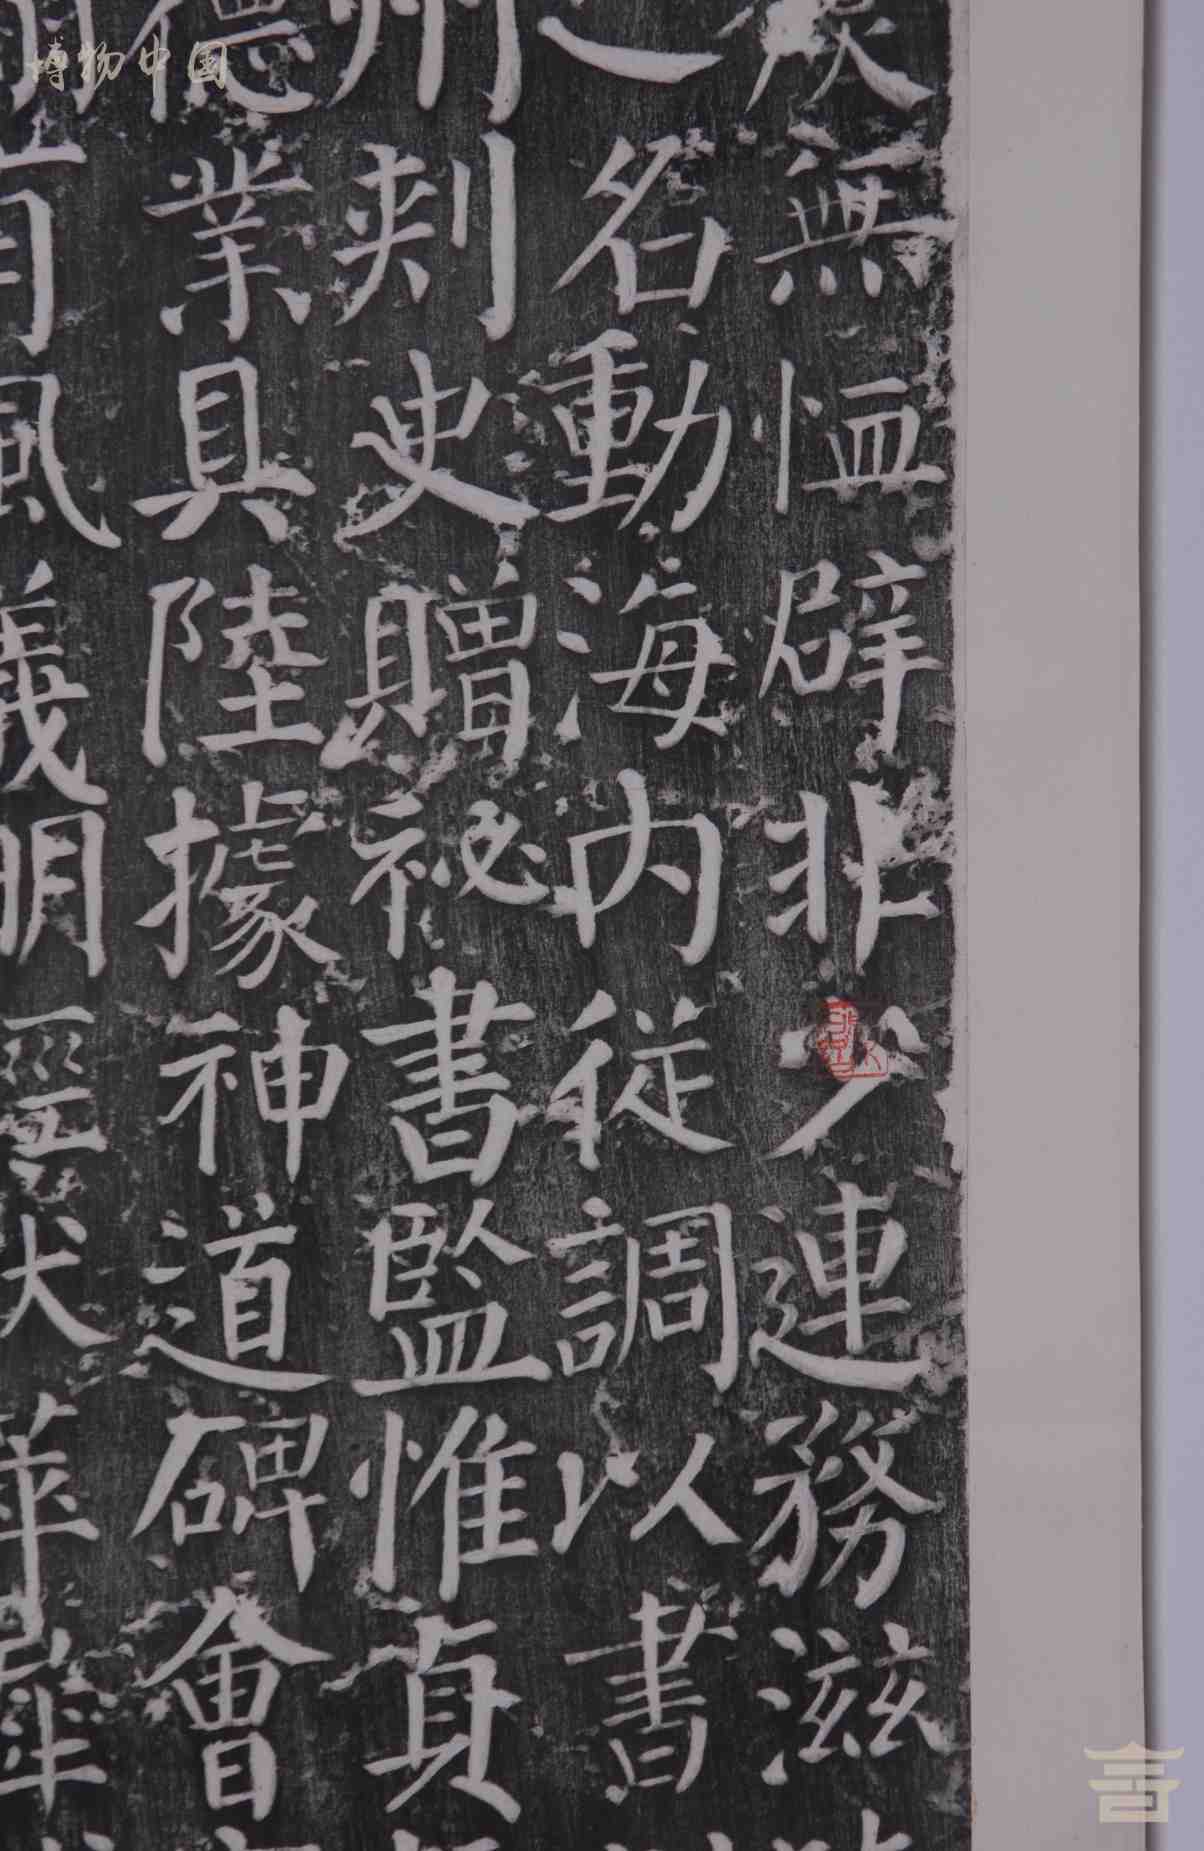 無恤辟非少連務滋
之名動海内従調以書
州刾史贈祕書監惟貞
德業具陸據神道碑會
有風義明經大
博物中国